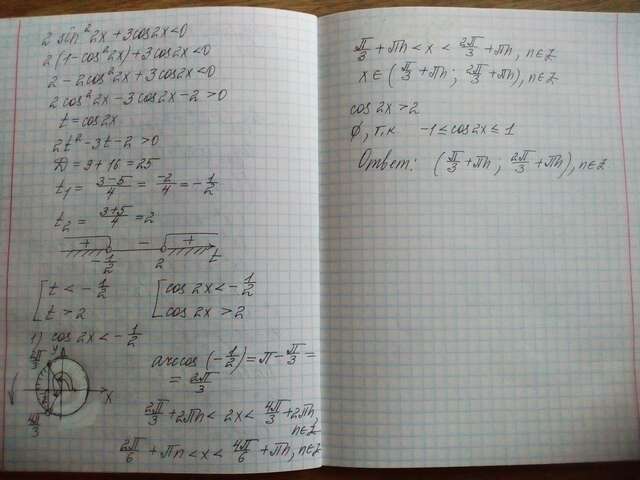 2 sin²2x + 3cos2x < 0
2(1-cos²2x) + 3cos2x < 0
2 - 2cos²2x + 3cos2x < 0
2cos²2x - 3cos2x - 2 > 0
t = cos2x
2t² - 3t - 2 > 0
D = 9 + 16 = 25
t₁ = (3-5)/4 = -2/4 = -1/2
t₂ = (3+5)/4 = 2
+ - +
-1/2 2 t
[ t < -1/2 [ cos2x < -1/2
[ t > 2 [ cos2x > 2
1) cos2x < -1/2
2π/3 y
x
4π/3
arccos(-1/2) = π - π/3 =
= 2π/3
2π/3 + 2πn < 2x < 4π/3 + 2πn,
n∈Z
2π/6 + πn < x < 4π/6 + πn, n∈Z
π/3 + πn < x < 2π/3 + πn, n∈Z
x∈(π/3 + πn; 2π/3 + πn), n∈Z
cos2x > 2
∅, т.к -1 ≤ cos2x ≤ 1
Ответ: (π/3 + πn; 2π/3 + πn), n∈Z